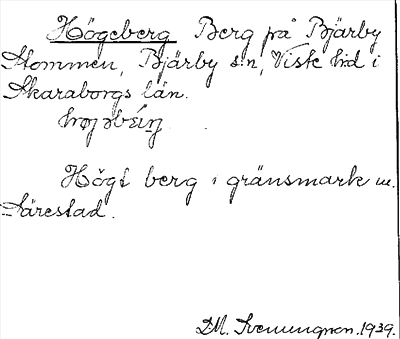 Högeberg Berg på Bjärby
Stommen, Bjärby s:n, Viste hd i
Skaraborgs län.
Högt berg i gränsmark m.
Särestad.
DM. Svenungson. 1939.